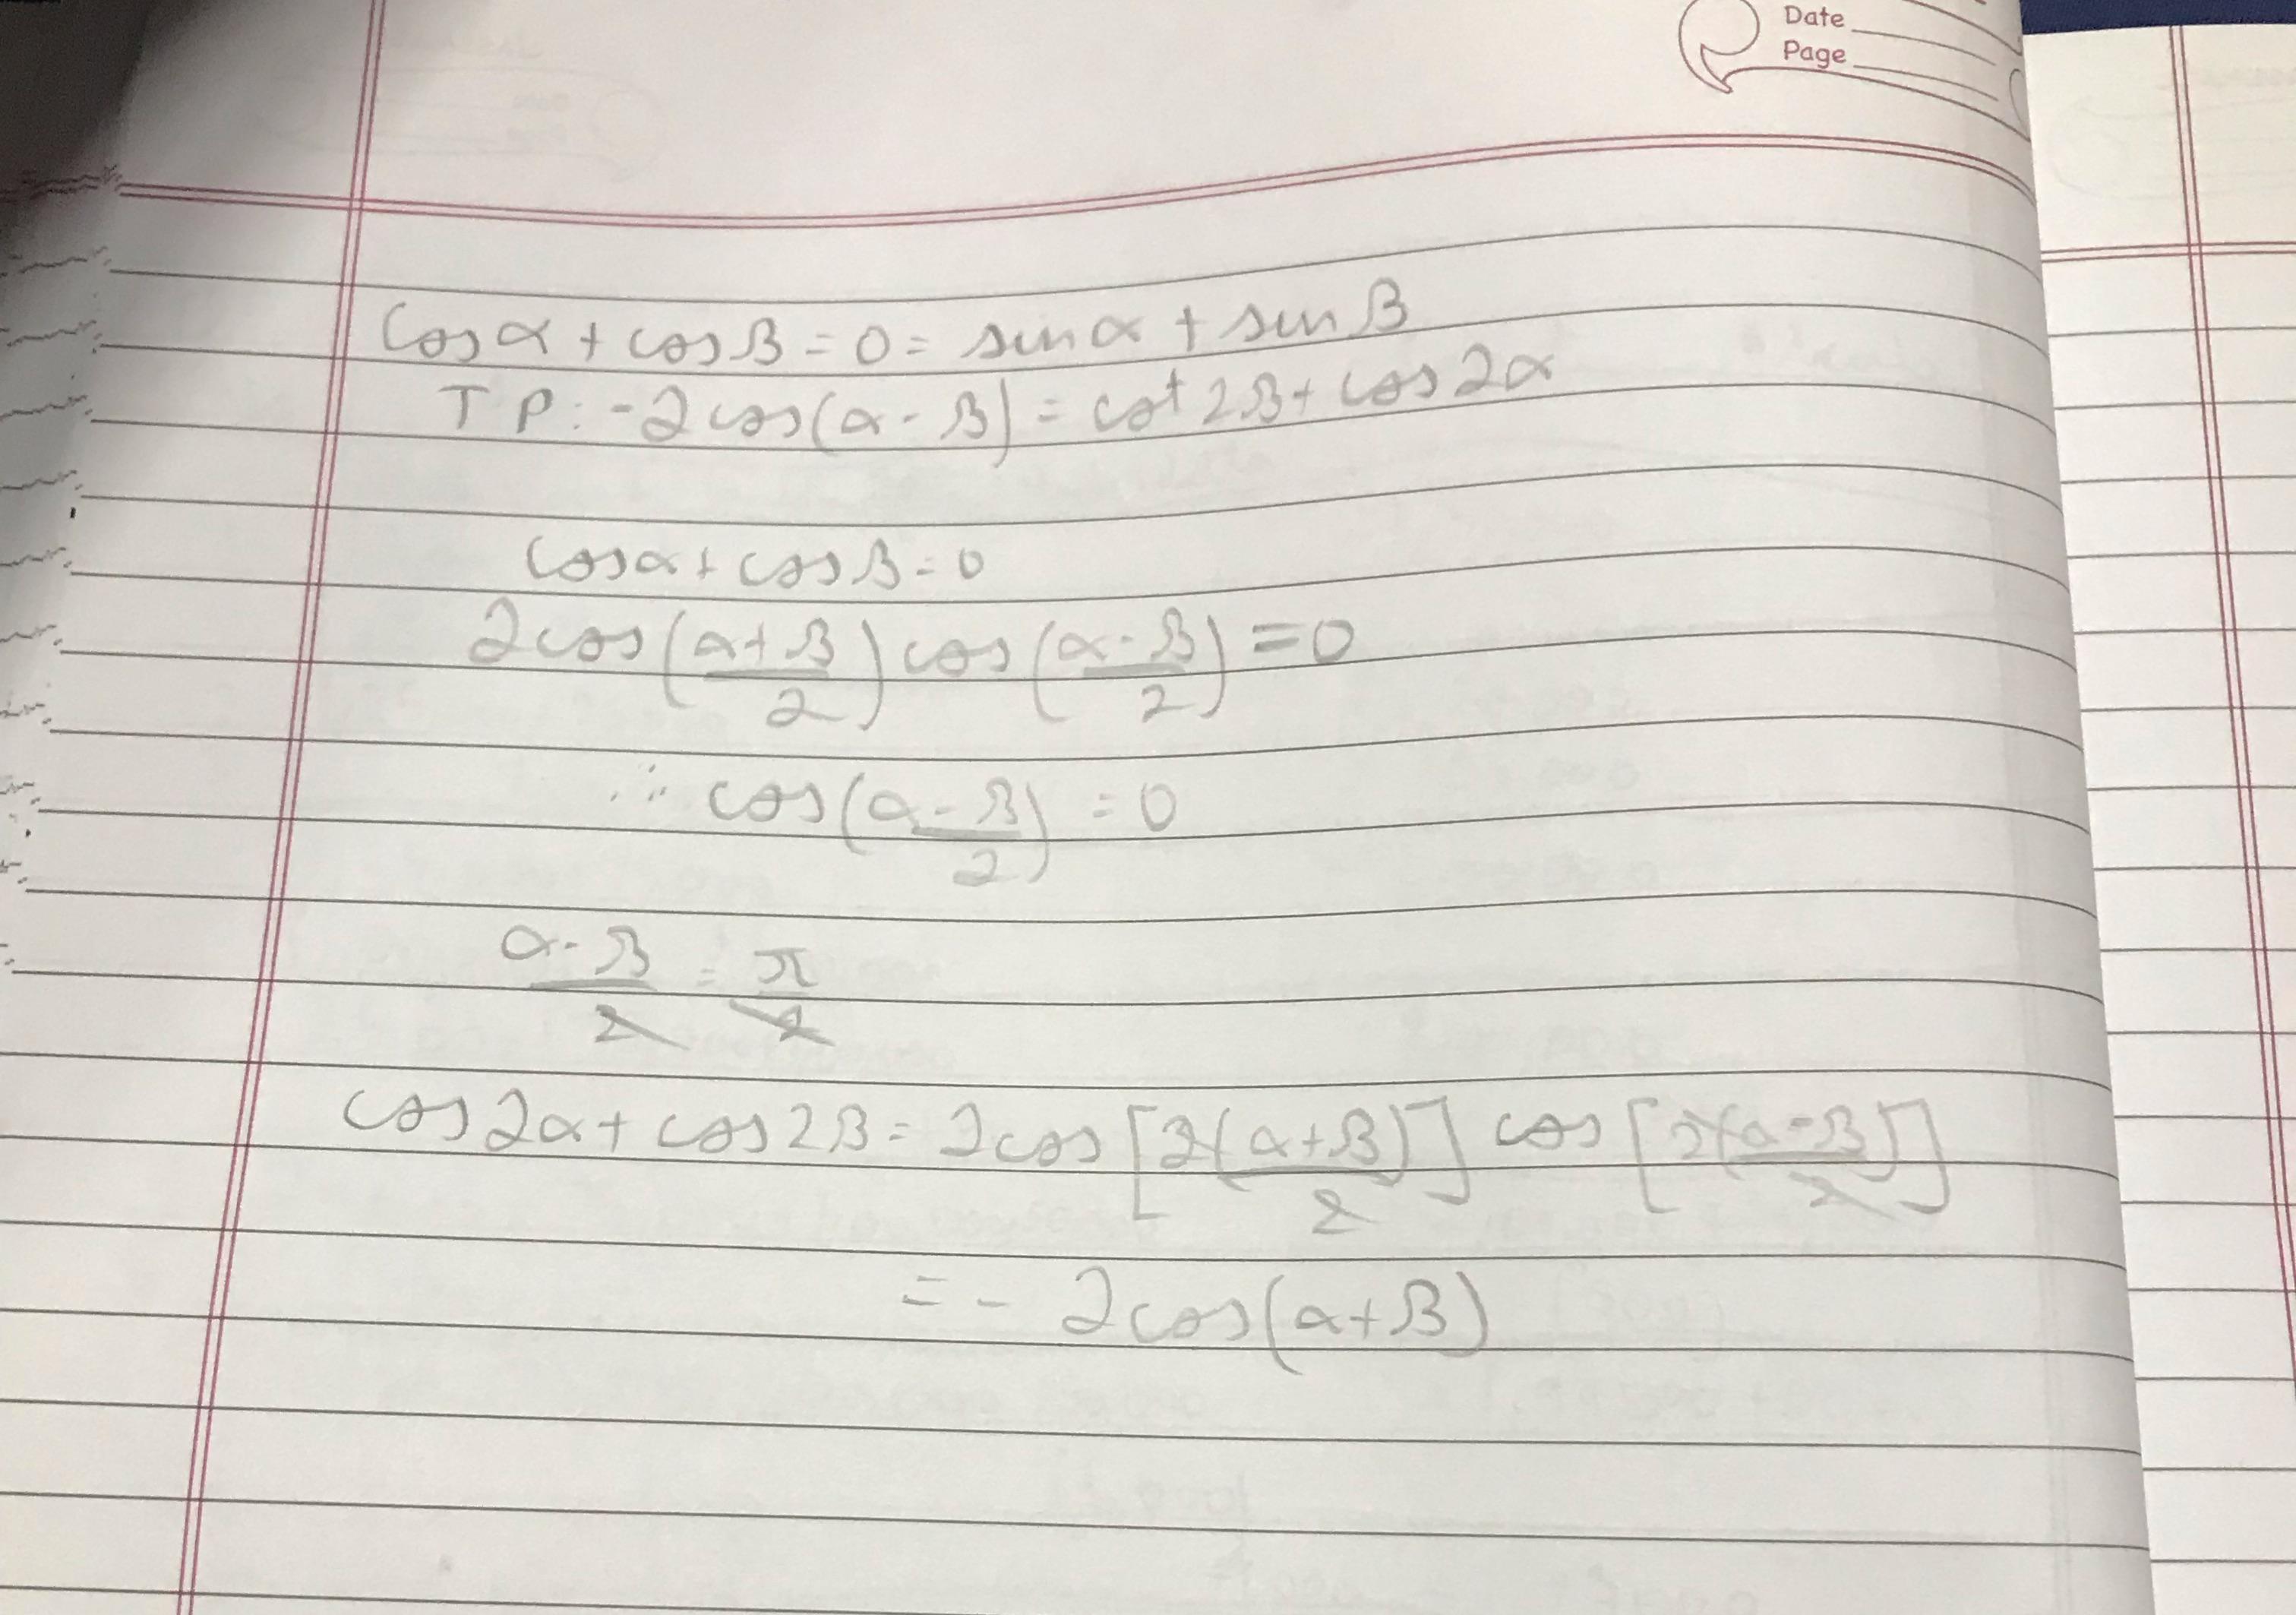 Date
Page
cosα + cosβ = 0 = sinα + sinβ
T P: -2cos(α - β) = cot 2β + cos2α
cosα + cosβ = 0
2cos((α+β)/2) cos((α-β)/2) = 0
∴ cos((α-β)/2) = 0
(α-β)/2 = π/2
cos2α + cos2β = 2cos[2(α+β)/2] cos[2(α-β)/2]
= - 2cos(α+β)